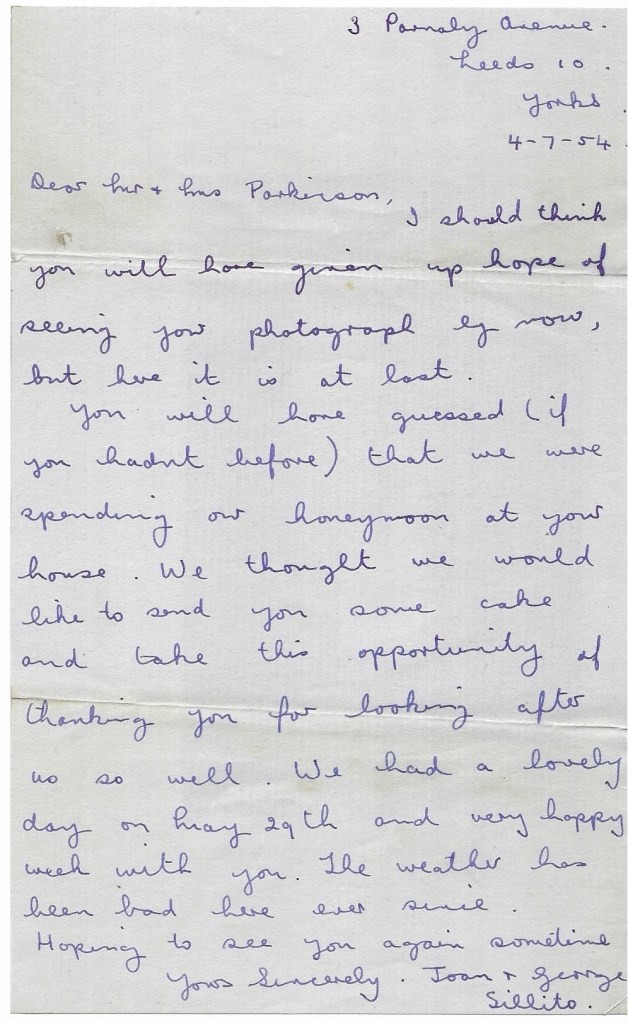 3 Parnaby Avenue.
Leeds 10.
Yorks.
4-7-54
Dear Mr + Mrs Parkinson,
I should think
you will have given up hope of
seeing your photograph by now,
but here it is at last.
You will have guessed (if
you hadnt before) that we were
spending our honeymoon at your
house. We thought we would
like to send you some cake
and take this opportunity of
thanking you for looking after
us so well. We had a lovely
day on May 29th and very happy
week with you. The weather has
been bad here ever since.
Hoping to see you again sometime
Yours Sincerely. Joan + George
Sillito.